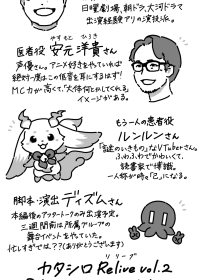 日曜劇場、朝ドラ、大河ドラマで
出演経験アリの演技派。
医者役
やすもと ひろき
安元洋貴さん
声優さん。アニメ好きをやっていれば
絶対一度はこの低音を耳にするはず!
MC力が高くて、「大体何とかしてくれる」
イメージがある。
もう一人の患者役
ルンルンさん
「謎のいきもの」なVTuberさん。
ふわふわでかわいくて、
読書家で博識。
一人称が時々「己」になる。
脚本・演出
ディズムさん
本編後のアフタートークのみ出演予定。
三週間前は所属グループの
舞台イベントをやっていた。
忙しすぎでは??(ありがとうございます)
リリーブ
カタシロReLive vol.2